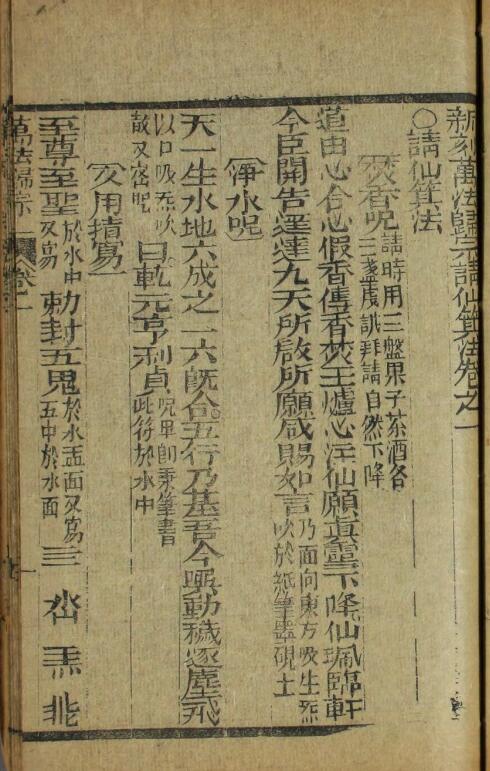 新刻萬法歸宗請仙箕法卷之一
○請仙箕法
焚香呪 請時用三盤果子茶酒各三盞虔誠拜請自然下降
道由心合心假香傳香焚玉爐心注仙願真靈下降仙珮臨軒
今臣開告逕達九天所啟所願咸賜如言 乃面向東方吸生炁吹於紙筆墨硯上
淨水呪
天一生水地六成之一六既合五行乃基吾今興動穢逐塵飛
以口吸炁吹 曰乾元亨利貞 呪畢即秉筆書此符於水中
故又密呪
又用搯寫
至尊至聖 於水中又寫 勅封五鬼 於水盂面又寫五中於水面
萬法歸宗 卷一 一